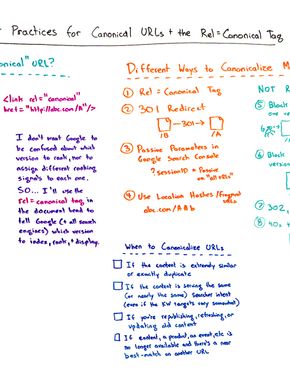 Practices for Canonical URLs + the Rel=Canonical Tag
onical" URL?
<link rel="canonical"
href="http://abc.com/A"/>
I don't want Google to
be confused about which
version to rank, nor to
assign different ranking
signals to each one.
SO... I'll use the
rel=canonical tag in
the document head to
tell Google (+ all search
engines) which version
to index, rank, + display.
Different Ways to Canonicalize M
① Rel=Canonical Tag
② 301 Redirect
1B —301→ A
③ Passive Parameters in
Google Search Console
?sessionID = Passive
on "all URLs"
④ Use Location Hashes
abc.com/A#b
When to Canonicalize URLs
If the content is extremely similar
or exactly duplicate
If the content is serving the same
(or nearly the same) searcher intent
(even if the KW targets vary somewhat)
If you're republishing, refreshing, or
updating old content
If content, a product, an event, etc is
no longer available and there's a near
best-match on another URL
NOT R
⑤ Block
one
⑥
Block
⑦ 302,
⑧ 40